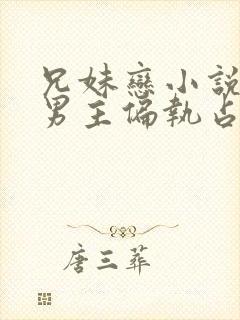 兄妹戀小說
男主偏執占
唐三葬